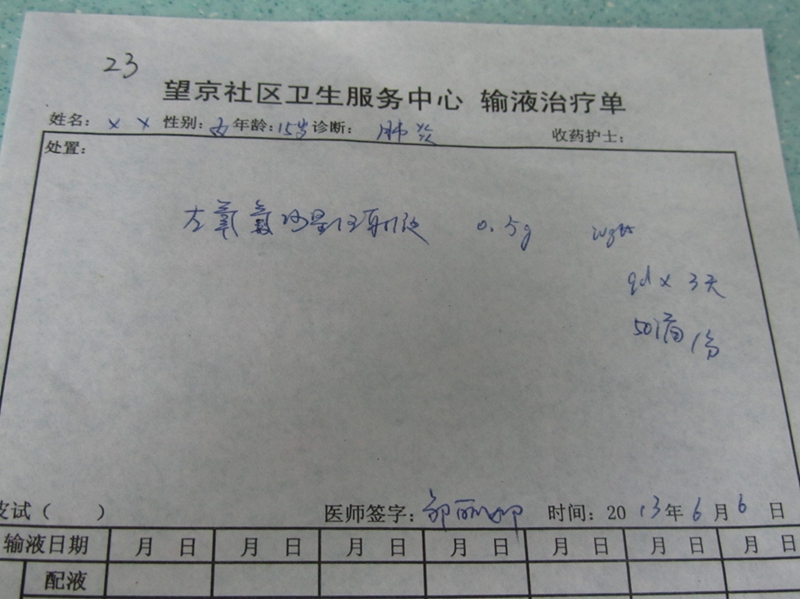 23
望京社区卫生服务中心 输液治疗单
姓名: × × 性别: 女 年龄: 15岁 诊断: 肺炎 收药护士:
处置:
左氧氟沙星注射液 0.5g ivgtt
qd × 3天
50滴/分
皮试( ) 医师签字: 时间: 2013年6月6日
输液日期 月 日 月 日 月 日 月 日 月 日 月 日 月 日
配液